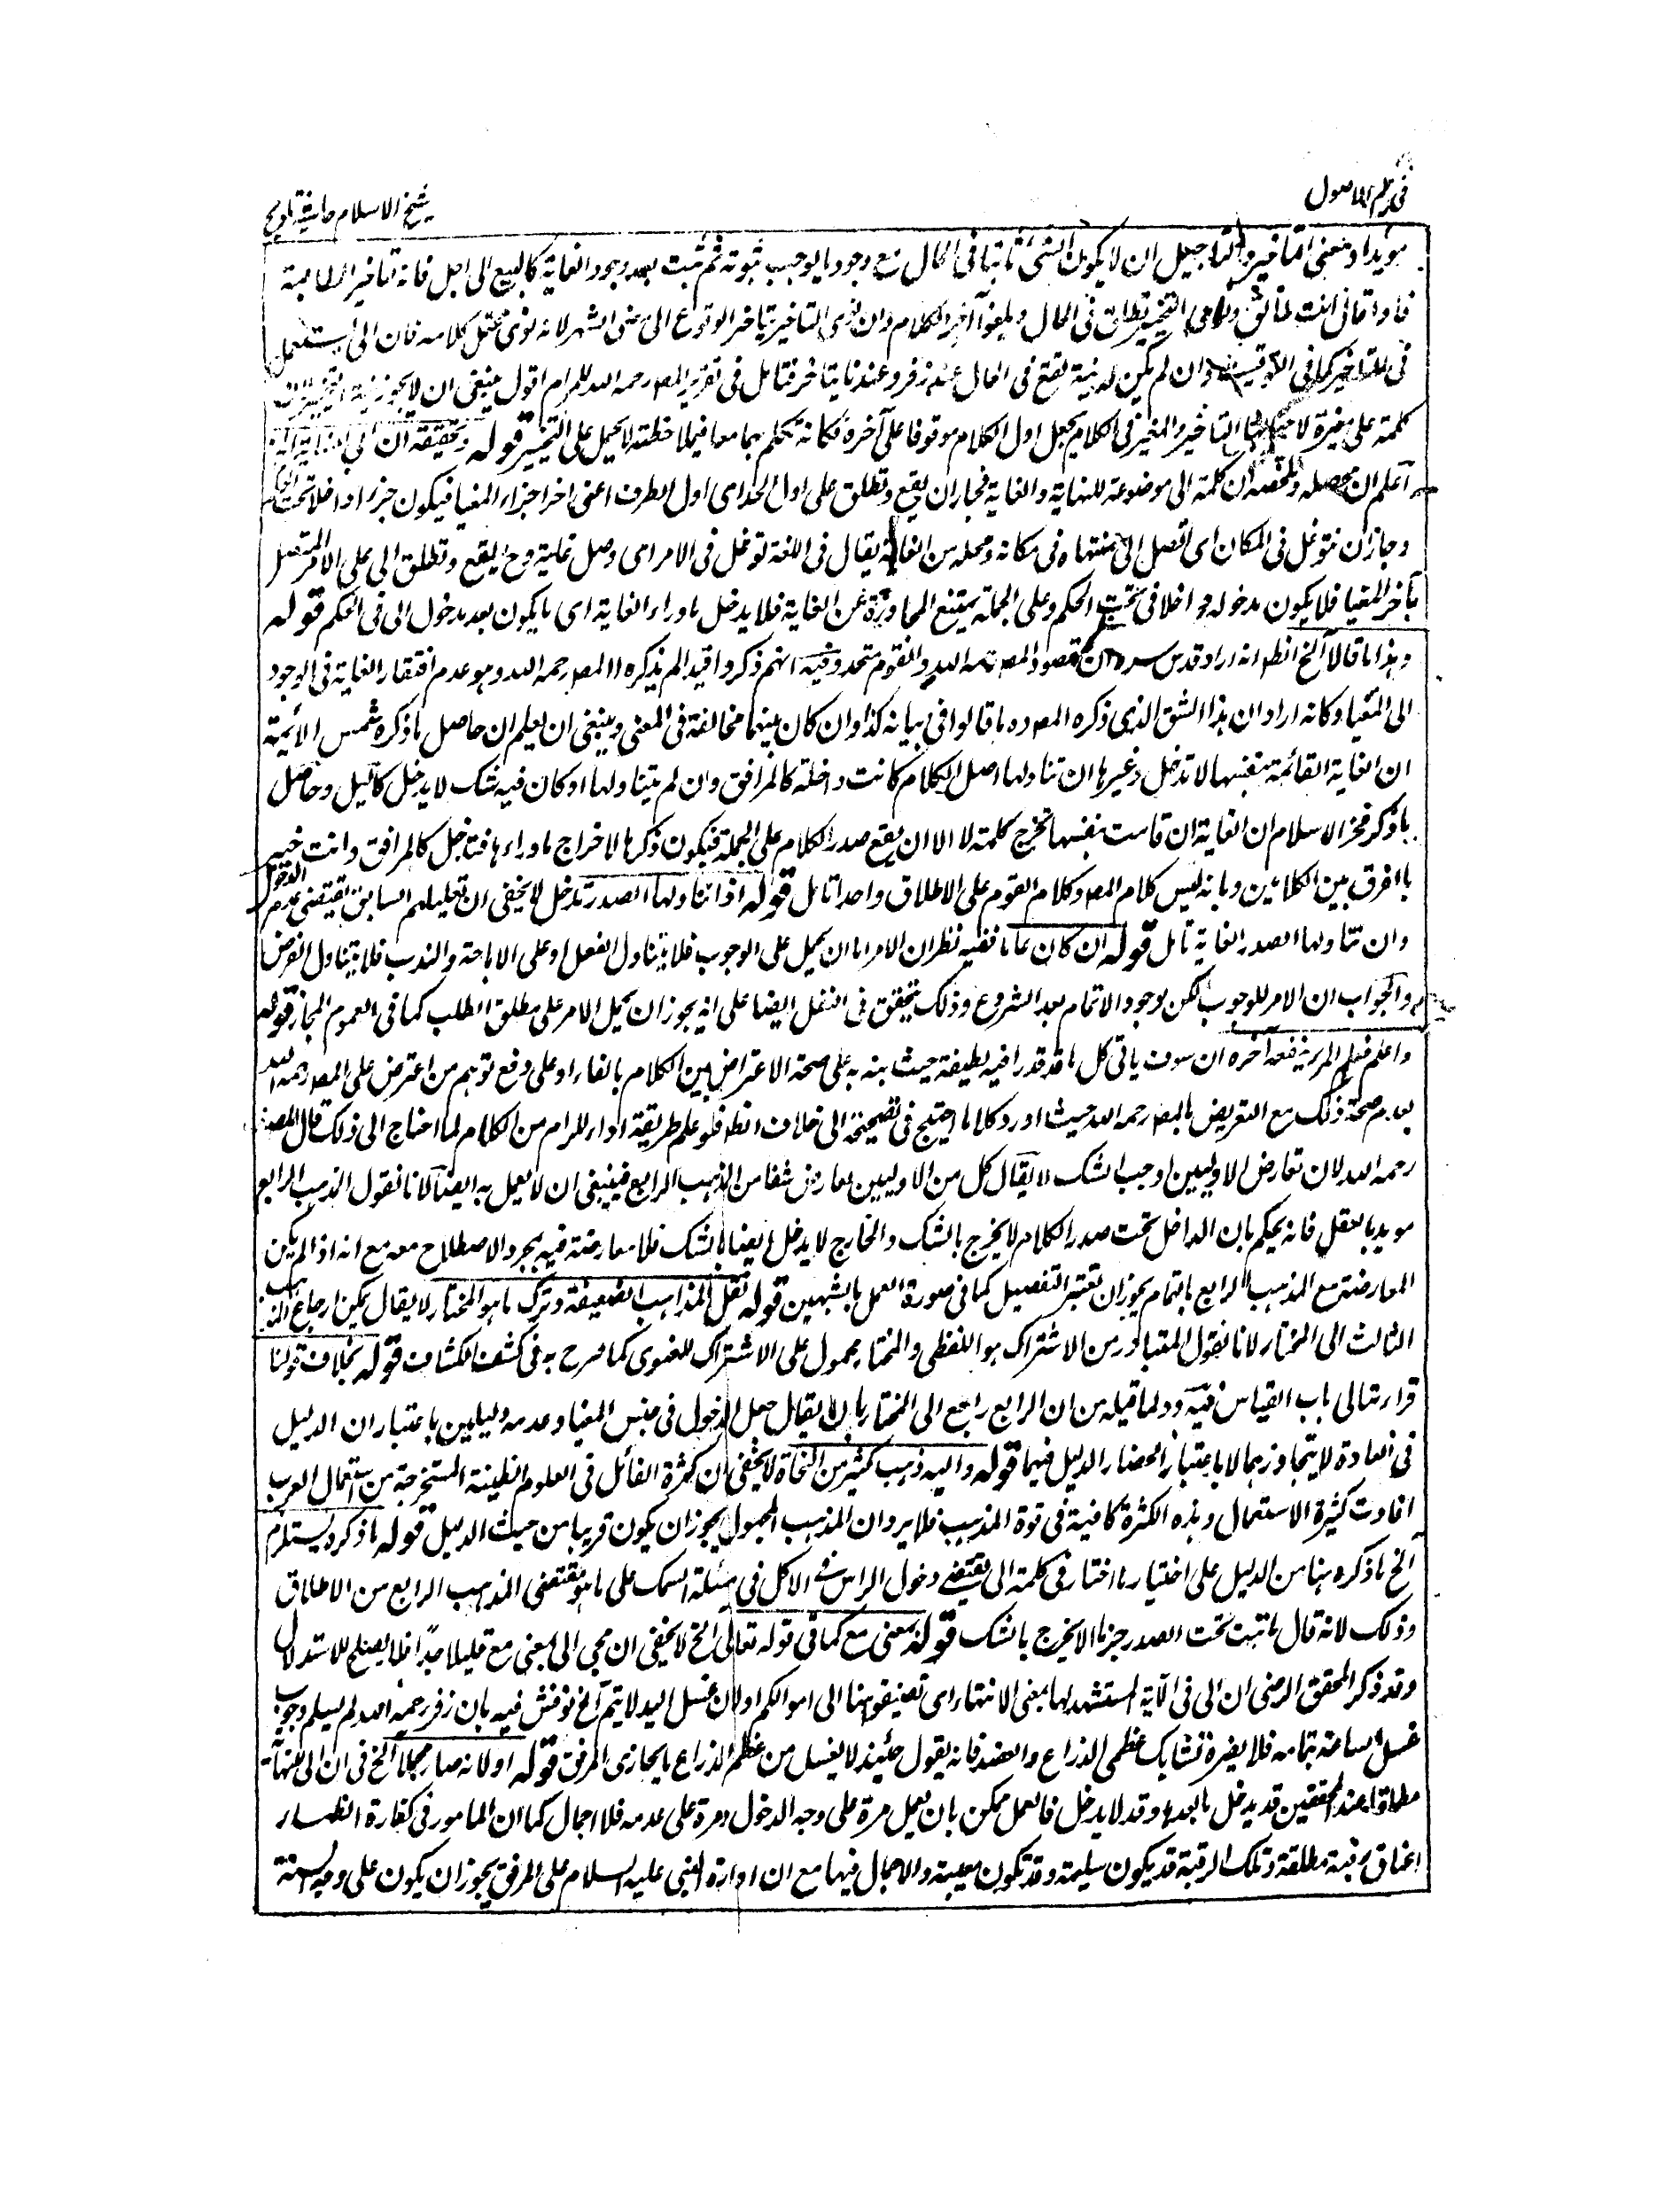 فى علم الاصول
شيخ الاسلام حاشية تلويح
مؤيدا ومعنى التاخير والتاجيل ان لا يكون الشئ ثابتا فى الحال مع وجود ما يوجب ثبوته ثم ثبت بعد وجود الغاية كالبيع الى اجل فانه لتاخير المطالبة
فاذا قال انت طالق ونوى التنجيز تطلق فى الحال ويلغو آخر الكلام وان نوى التاخير يتاخر الوقوع الى مضى الشهر لانه نوى محتمل كلامه فان الى يستعمل
فى التاخير كما فى التوقيت وان لم يكن له نية تقع فى الحال عند زفر وعندنا يتاخر فتامل فى تقرير المصـ رحمه الله للمرام اقول ينبغى ان لا يجوز نية التنجيز لان
كلمة على مغيرة التاخير والمغير فى الكلام يجعل اول الكلام موقوفا على آخره فكانه تكلم بهما معا فبملاحظته لا يحمل على التنجيز قوله وتحقيقه ان الى للغاية الخ
اعلم ان محصله وملخصه ان كلمة الى موضوعة للنهاية والغاية فجاز ان يقع وتطلق على اول الحد اى اول الطرف اعنى اخر اجزاء المغيا فيكون جزء او داخلا تحت الحكم
وجاز ان تتوغل فى المكان اى تصل الى منتهاه فى مكانه ومحله من الغاية يقال فى اللغة توغل فى الامر اى وصل غايته وح يقع وتطلق الى على الامر المتصل
بآخر المغيا فلا يكون مدخوله داخلا فى تحت الحكم وعلى الجملة يمتنع المجاوزة عن الغاية فلا يدخل ما وراء الغاية اى ما يكون بعد مدخول الى فى الحكم قوله
وهذا ما قالا آلخ الظـ انه اراد قدس سره ان مقصود المصـ رحمه الله والقوم متحد وفيه انهم ذكروا قيدا لم يذكره المصـ رحمه الله وهو عدم افتقار الغاية فى الوجود
الى المغيا وكانه اراد ان هذا الشق الذى ذكره المصـ ده ما قالوا فى بيانه كذا وان كان بينهما مخالفة فى المعنى وينبغى ان يعلم ان حاصل ما ذكره شمس الائمة
ان الغاية القائمة بنفسها لا تدخل وغيرها ان تناولها اصل الكلام كانت داخلة كالمرافق وان لم يتناولها او كان فيه شك لا يدخل كالليل وحاصل
ما ذكر فخر الاسلام ان الغاية ان قامت بنفسها تخرج كلمة لا الا ان يقع صدر الكلام على الجملة فيكون ذكرها لاخراج ما وراءها فتدخل كالمرافق وانت خبير
بالفرق بين الكلامين وبانه ليس كلام المصـ وكلام القوم على الاطلاق واحدا تامل قوله اذا تناولها الصدر تدخل لا يخفى ان تعليلهم السابق يقتضى عدم الدخول
وان تناولها الصدر الغاية تامل قوله ان كان عاما ففيه نظر ان الامر اما ان يحمل على الوجوب فلا يتناول الفعل او على الاباحة والندب فلا يتناول الفرض
والجواب ان الامر للوجوب لكن لوجود الاتمام بعد الشروع وذلك يتحقق فى النفل ايضا على انه يجوز ان يحمل الامر على مطلق الطلب كما فى العموم المجاز قوله
واعلم فعلم المرء ينفعه آخره ان سوف ياتى كل ما قدرا فيه لطيفة حيث نبه به على صحة الاعتراض بين الكلام بالفاء او على دفع توهم من اعترض على المصـ رحمه الله
بعدم صحة ذلك مع التعريض بالمصـ رحمه الله حيث اورد كلاما احتيج فى تصحيحه الى خلاف الظـ فلو علم طريقة اداء المرام من الكلام لما احتاج الى ذلك قال المصـ
رحمه الله لان تعارض الاوليين اوجب الشك لا يقال كل من الاوليين معارض شفا من المذهب الرابع فينبغى ان لا يعمل به ايضا لانا نقول المذهب الرابع
مويد بالعقل فانه يحكم بان الداخل تحت صدر الكلام لا يخرج بالشك والخارج لا يدخل ايضا بالشك فلا معارضة فيه بمجرد الاصطلاح معه مع انه اذا لم يكن
المعارضة مع المذهب الرابع بالتمام يجوز ان تعتبر التفصيل كما فى صورة العمل بالشبهين قوله نقل المذاهب الضعيفة وترك ما هو المختار لا يقال يمكن ارجاع المذهب
الثالث الى المختار لانا نقول المتبادر من الاشتراك هو اللفظى والمختار محمول على الاشتراك المعنوى كما صرح به فى كشف الكشاف قوله بخلاف قولنا
قراءتا الى باب القياس فيه رد لما قيل من ان الرابع راجع الى المختار بان يقال جعل الدخول فى جنس المغيا وعدمه دليلين باعتبار ان الدليل
فى العادة لا يتجاوزهما لا باعتبار انحصار الدليل فيهما قوله واليه ذهب كثير من النحاة لا يخفى ان كثرة القائل فى العلوم الظنية المستخرجة من استعمال العرب
افادت كثيرة الاستعمال وهذه الكثرة كافية فى قوة المذهب فلا يرد ان المذهب المجهول يجوز ان يكون قريبا من حيث الدليل قوله ما ذكره يستلزم
آلخ ما ذكره هنا من الدليل على اختيار ما اختار فى كلمة الى يقتضى دخول الراس فى الاكل فى مسئلة السمك على ما هو مقتضى المذهب الرابع من الاطلاق
وذلك لانه قال ما ثبت تحت الصدر جزما لا يخرج بالشك قوله بمعنى مع كما فى قوله تعالى آلخ لا يخفى ان مجى الى بمعنى مع قليلا جدا فلا يصلح للاستدلال
وقد ذكر المحقق الرضى ان الى فى الآية المستشهد لها بمعنى الانتهاء اى تضيفونها الى اموالكم او لان غسل اليد لا يتم آلخ نوقش فيه بان زفر رحمه الله لم يسلم وجوب
غسل الساعد بتمامه فلا يضره تشابك عظمى الذراع والعضد فانه يقول حينئذ لا يغسل من عظم الذراع ما يحاذى المرفق قوله او لانه صار مجملا آلخ فى ان الى للنهاية
مطلقا عند المحققين قد يدخل ما بعدها وقد لا يدخل فالعمل ممكن بان يعمل مرة على وجه الدخول ومرة على عدمه فلا اجمال كما ان المامور فى كفارة الظهار
اعتاق رقبة مطلقة وتلك الرقبة قد يكون سليمة وقد تكون معيبة والاجمال فيها مع ان ادارة النبى عليه السلام على المرفق يجوز ان يكون على وجه السنة